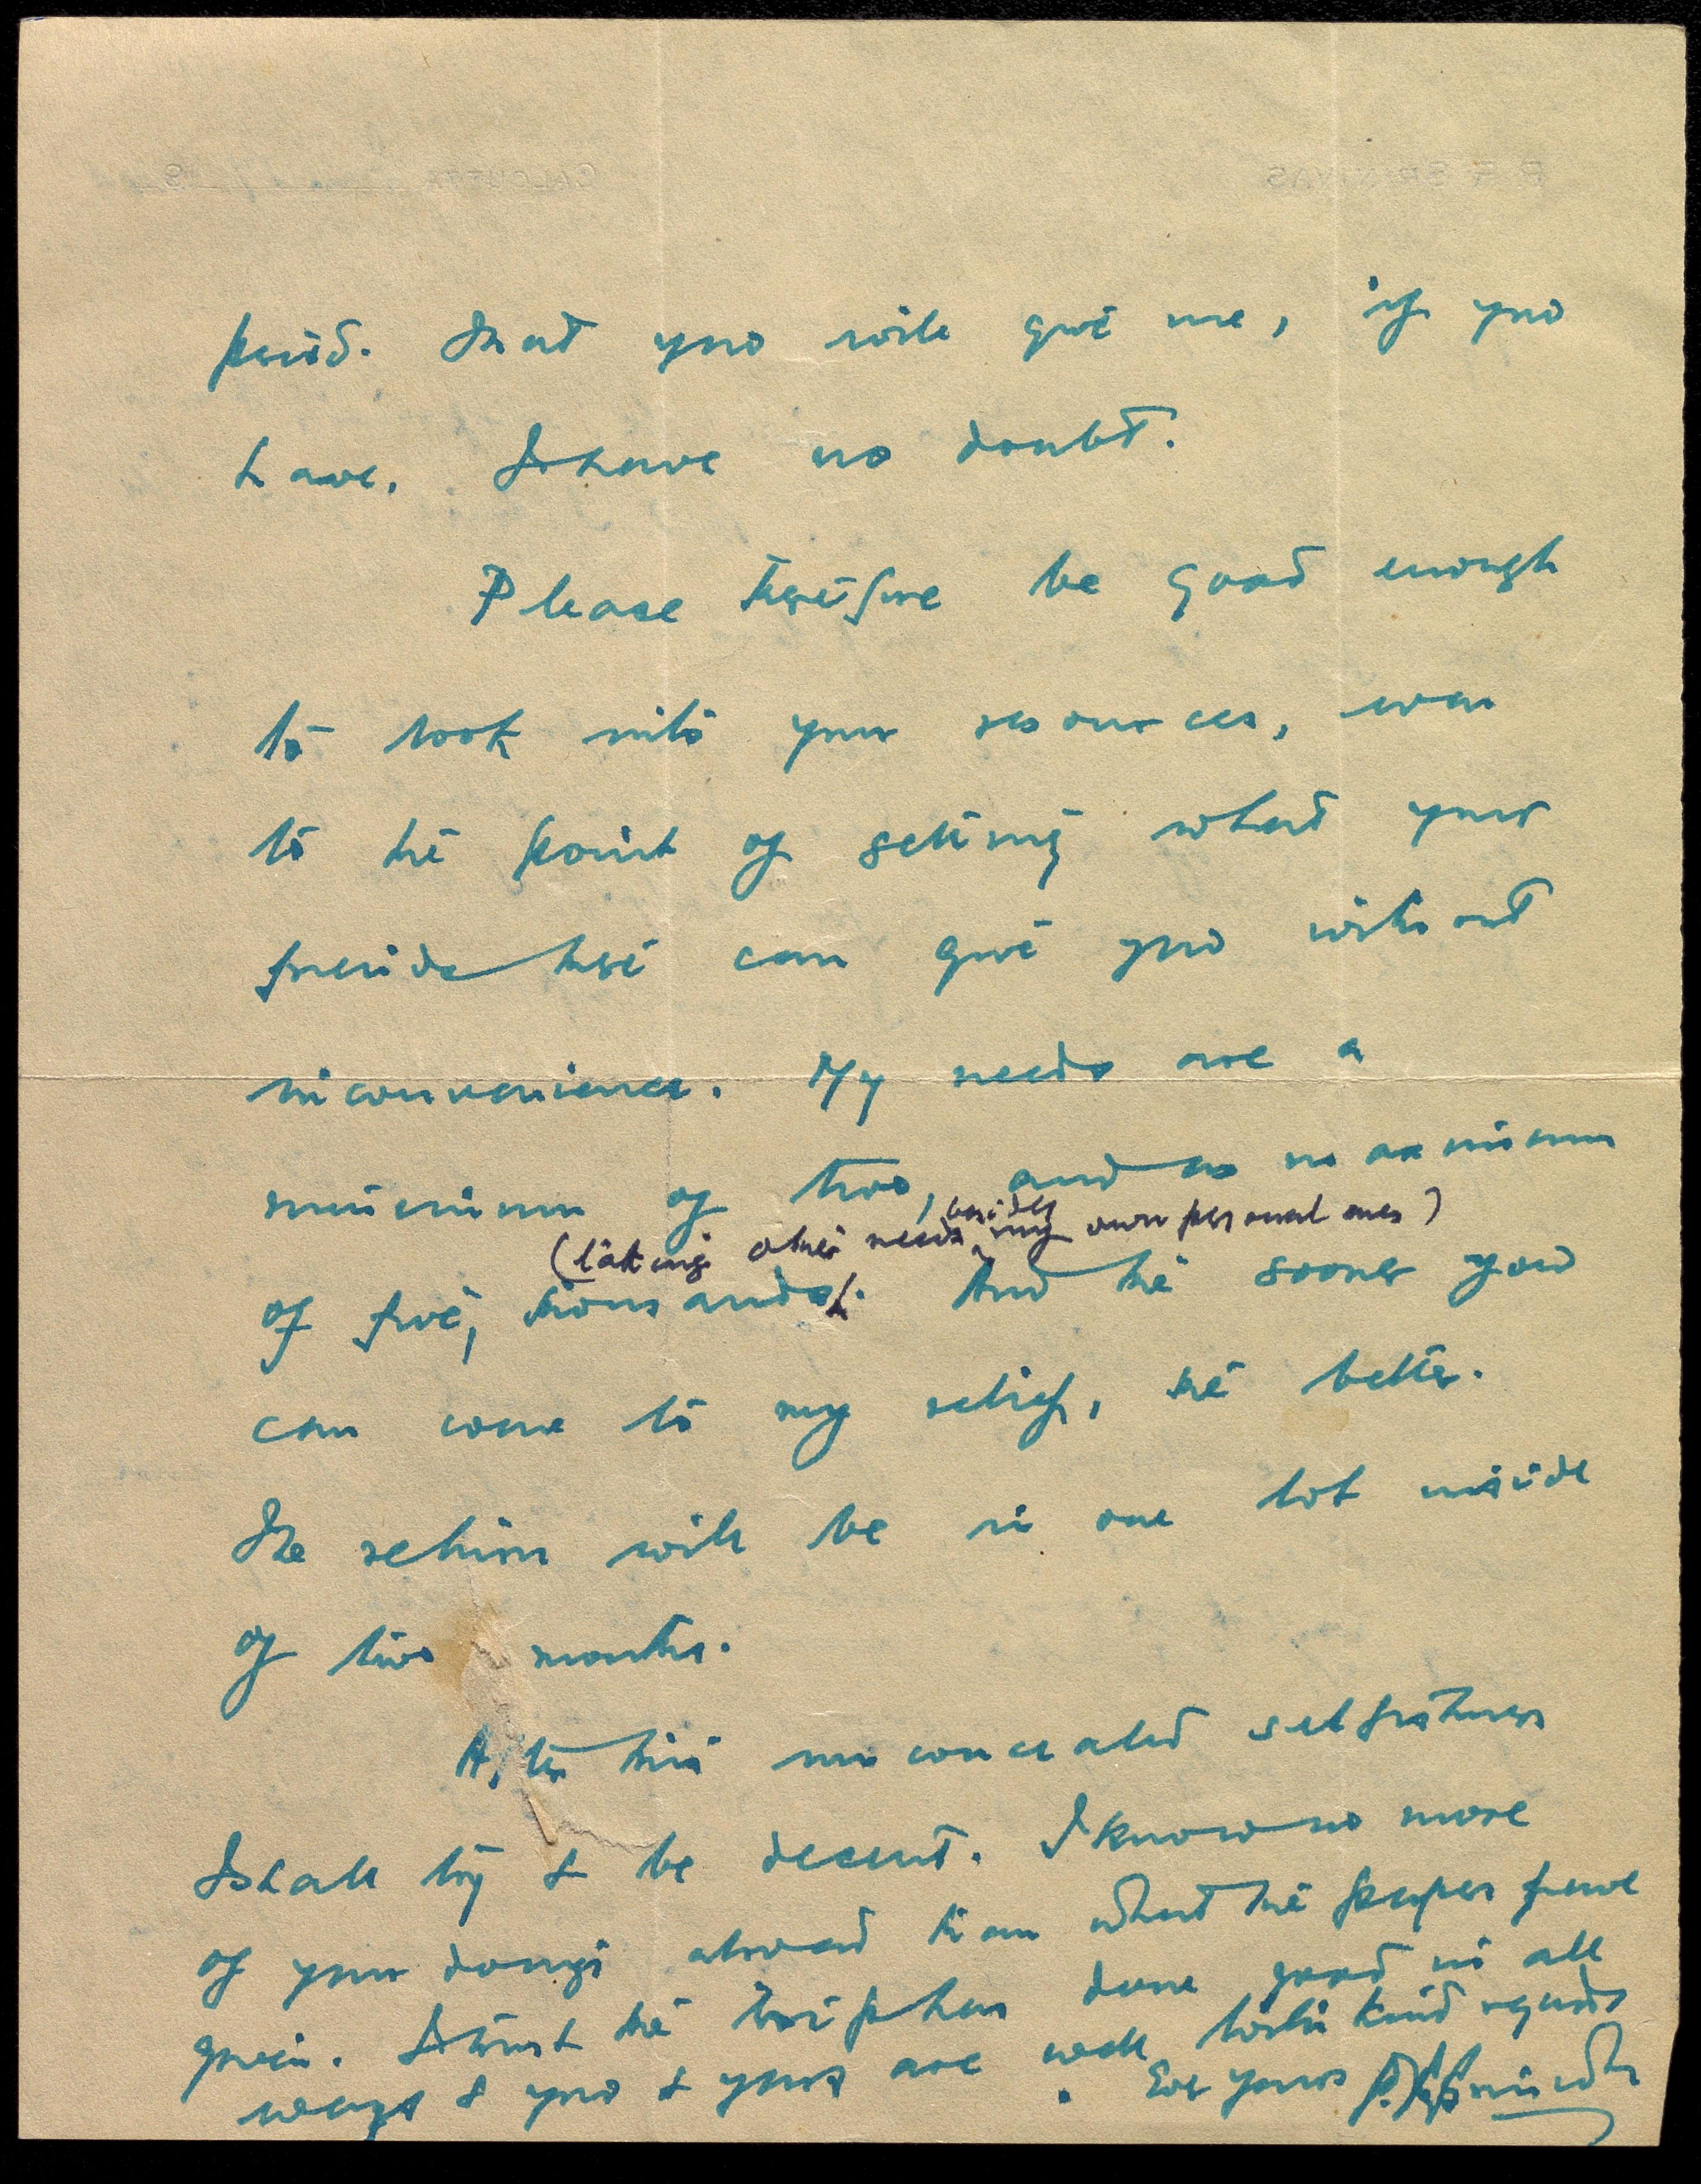 period. That you will give me, if you
have, I have no doubt.
Please therefore be good enough
to look into your resources, even
to the point of getting what your
friends here can give you without
inconvenience. My needs are a
minimum of two, and a maximum
(taking other needs besides my own personal ones)
of five, thousands. And the sooner you
can come to my relief, the better.
The return will be in one lot inside
of two months.
After this unconcealed selfishness
I shall try & be decent. I know no more
of your doings abroad than what the papers have
given. I trust the trip has done good in all
ways & you & yours are well. With kind regards
Ever yours